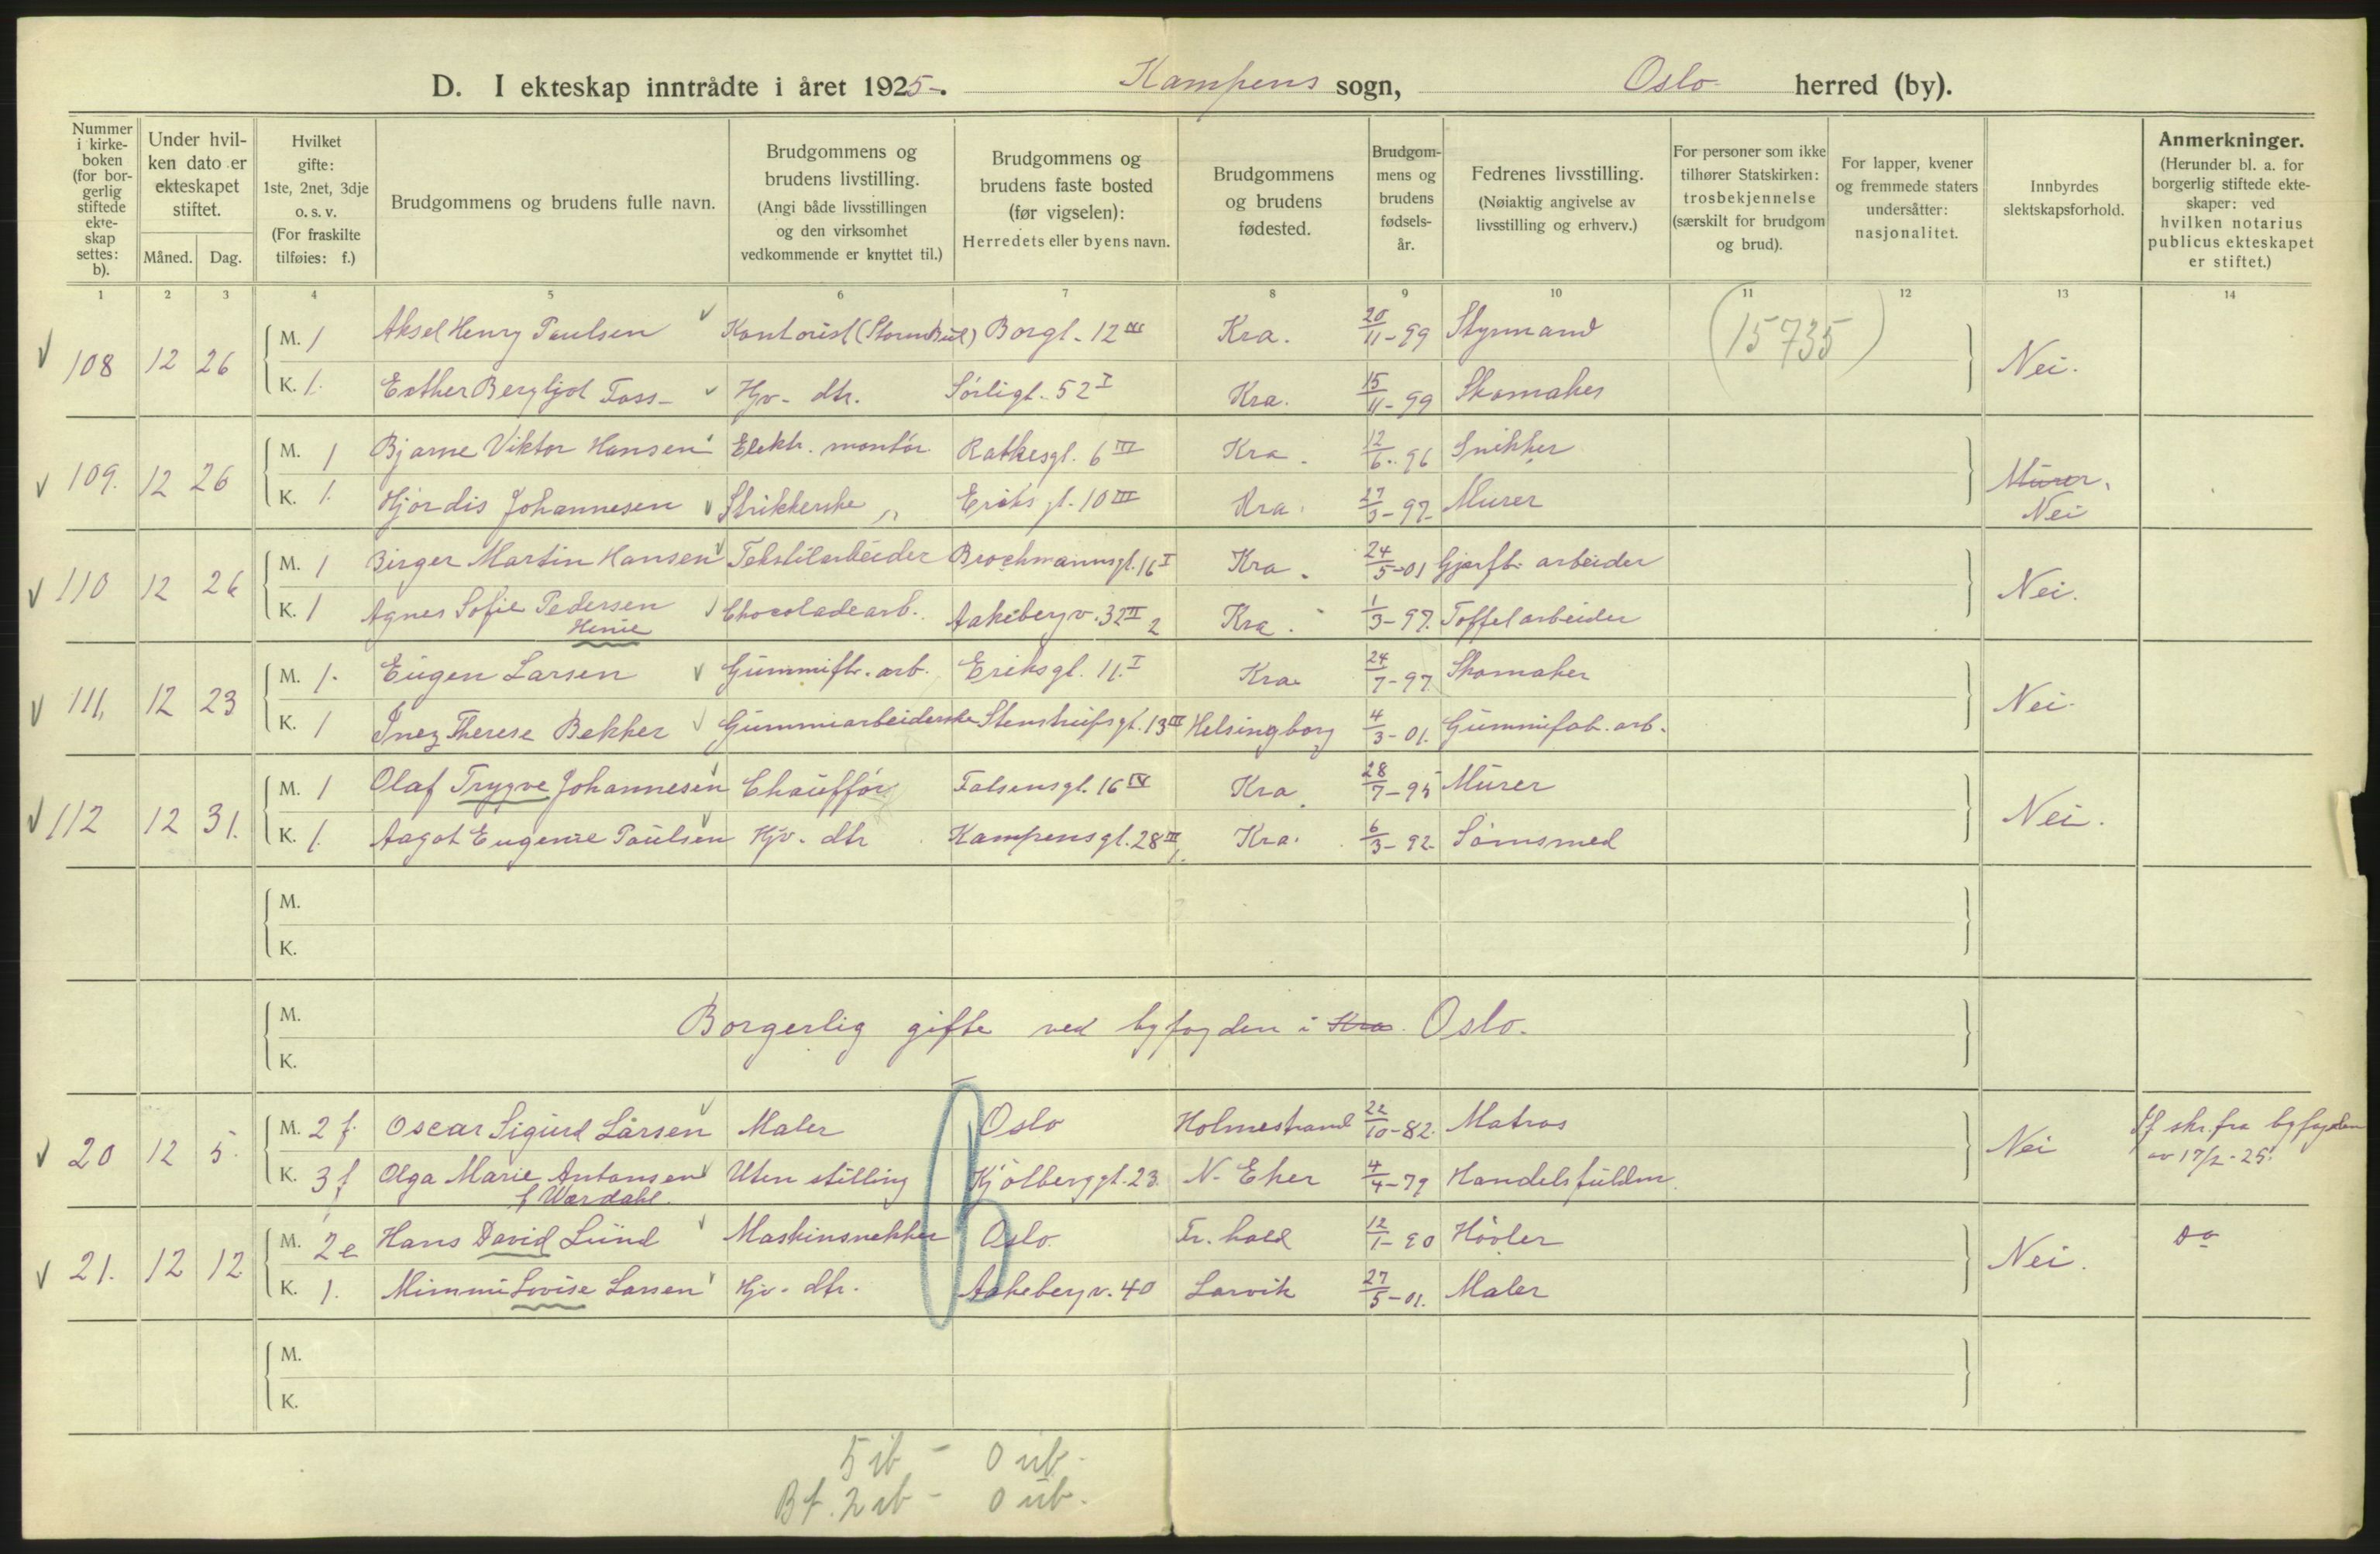 D. I ekteskap inntrådte i året 1925. Kampens sogn, Oslo herred (by).
Nummer i kirke-boken (for bor-gerlig stiftede ekte-skap settes: b).
Under hvil-ken dato er ekteskapet stiftet.
Måned. Dag.
Hvilket gifte: 1ste, 2net, 3dje o. s. v. (For fraskilte tilføies: f.)
Brudgommens og brudens fulle navn.
Brudgommens og brudens livstilling. (Angi både livsstillingen og den virksomhet vedkommende er knyttet til.)
Brudgommens og brudens faste bosted (før vigselen): Herredets eller byens navn.
Brudgommens og brudens fødested.
Brudgom-mens og brudens fødsels-år.
Fedrenes livsstilling. (Nøiaktig angivelse av livsstilling og erhverv.)
For personer som ikke tilhører Statskirken: trosbekjennelse (særskilt for brudgom og brud).
For lapper, kvener og fremmede staters undersåtter: nasjonalitet.
Innbyrdes slektskapsforhold.
Anmerkninger. (Herunder bl. a. for borgerlig stiftede ekte-skaper: ved hvilken notarius publicus ekteskapet er stiftet.)
1 2 3 4 5 6 7 8 9 10 11 12 13 14
108 12 26 M. 1 Aksel Henry Paulsen Kontorist Borgt. 12 III Kra. 20/11-99 Styrmand (15735) Nei.
K. 1. Esther Bergljot Foss Hjv. dtr. Sørligt. 52 I Kra. 15/11-99 Skomaker
109. 12 26 M. 1 Bjarne Viktor Hansen Elektr. montør Rathkesgt. 6 III Kra. 12/6-96 Snikker Murer.
K. 1. Hjørdis Johannesen Strikkerske Eriks gt. 10 III Kra. 27/3-97 Murer Nei
110 12 26 M. 1 Birger Martin Hansen Tekstilarbeider Brochmannsgt. 16 I Kra. 24/5-01 arbeider Nei.
K. 1 Agnes Sofie Pedersen Chocoladearb. Aakebergv. 32 II 2 Kra. 1/3-97. Toffelarbeider
Henie
111, 12 23 M. 1. Eugen Larsen Gummifbr. arb. Eriksgt. 11. I Kra 24/7-97 Skomaker Nei.
K. 1 Inez Therese Bekker Gummiarbeiderske Stenstrupsgt. 13 III Helsingborg 4/3-01. Gummifab. arb.
112 12 31. M. 1 Olaf Trygve Johannesen Chauffør Falsensgt. 16 IV Kra. 28/7-95 Murer Nei.
K. 1. Aagot Eugenie Paulsen Hjv. dtr Kampensgt. 28 III Kra. 6/3-92 Sømsmed
M.
K.
M.
Borgerlig gifte ved byfogden i Kra. Oslo.
K.
20 12 5. M. 2 f. Oscar Sigurd Larsen Maler Oslo Holmestrand 22/10-82. Matros Nei skr. fra byfogden
K. 3 f Olga Marie Antonsen Uten stilling Kjølberggt. 23. N. Eker 4/4-79 Handelsfuldm. av 17/2-25.
f Wærdahl.
21. 12 12 M. 2 e Hans David Lund Maskinsnekker Oslo Fr. hald 12/1-90 Høvler Nei. Do
K. 1. Mimmi Lovise Larsen Hjv. dtr. Aakebergv. 40 Larvik 27/5-01. Maler
M.
K.
5 ib - 0 ub.
Bf. 2 ib - 0 ub.